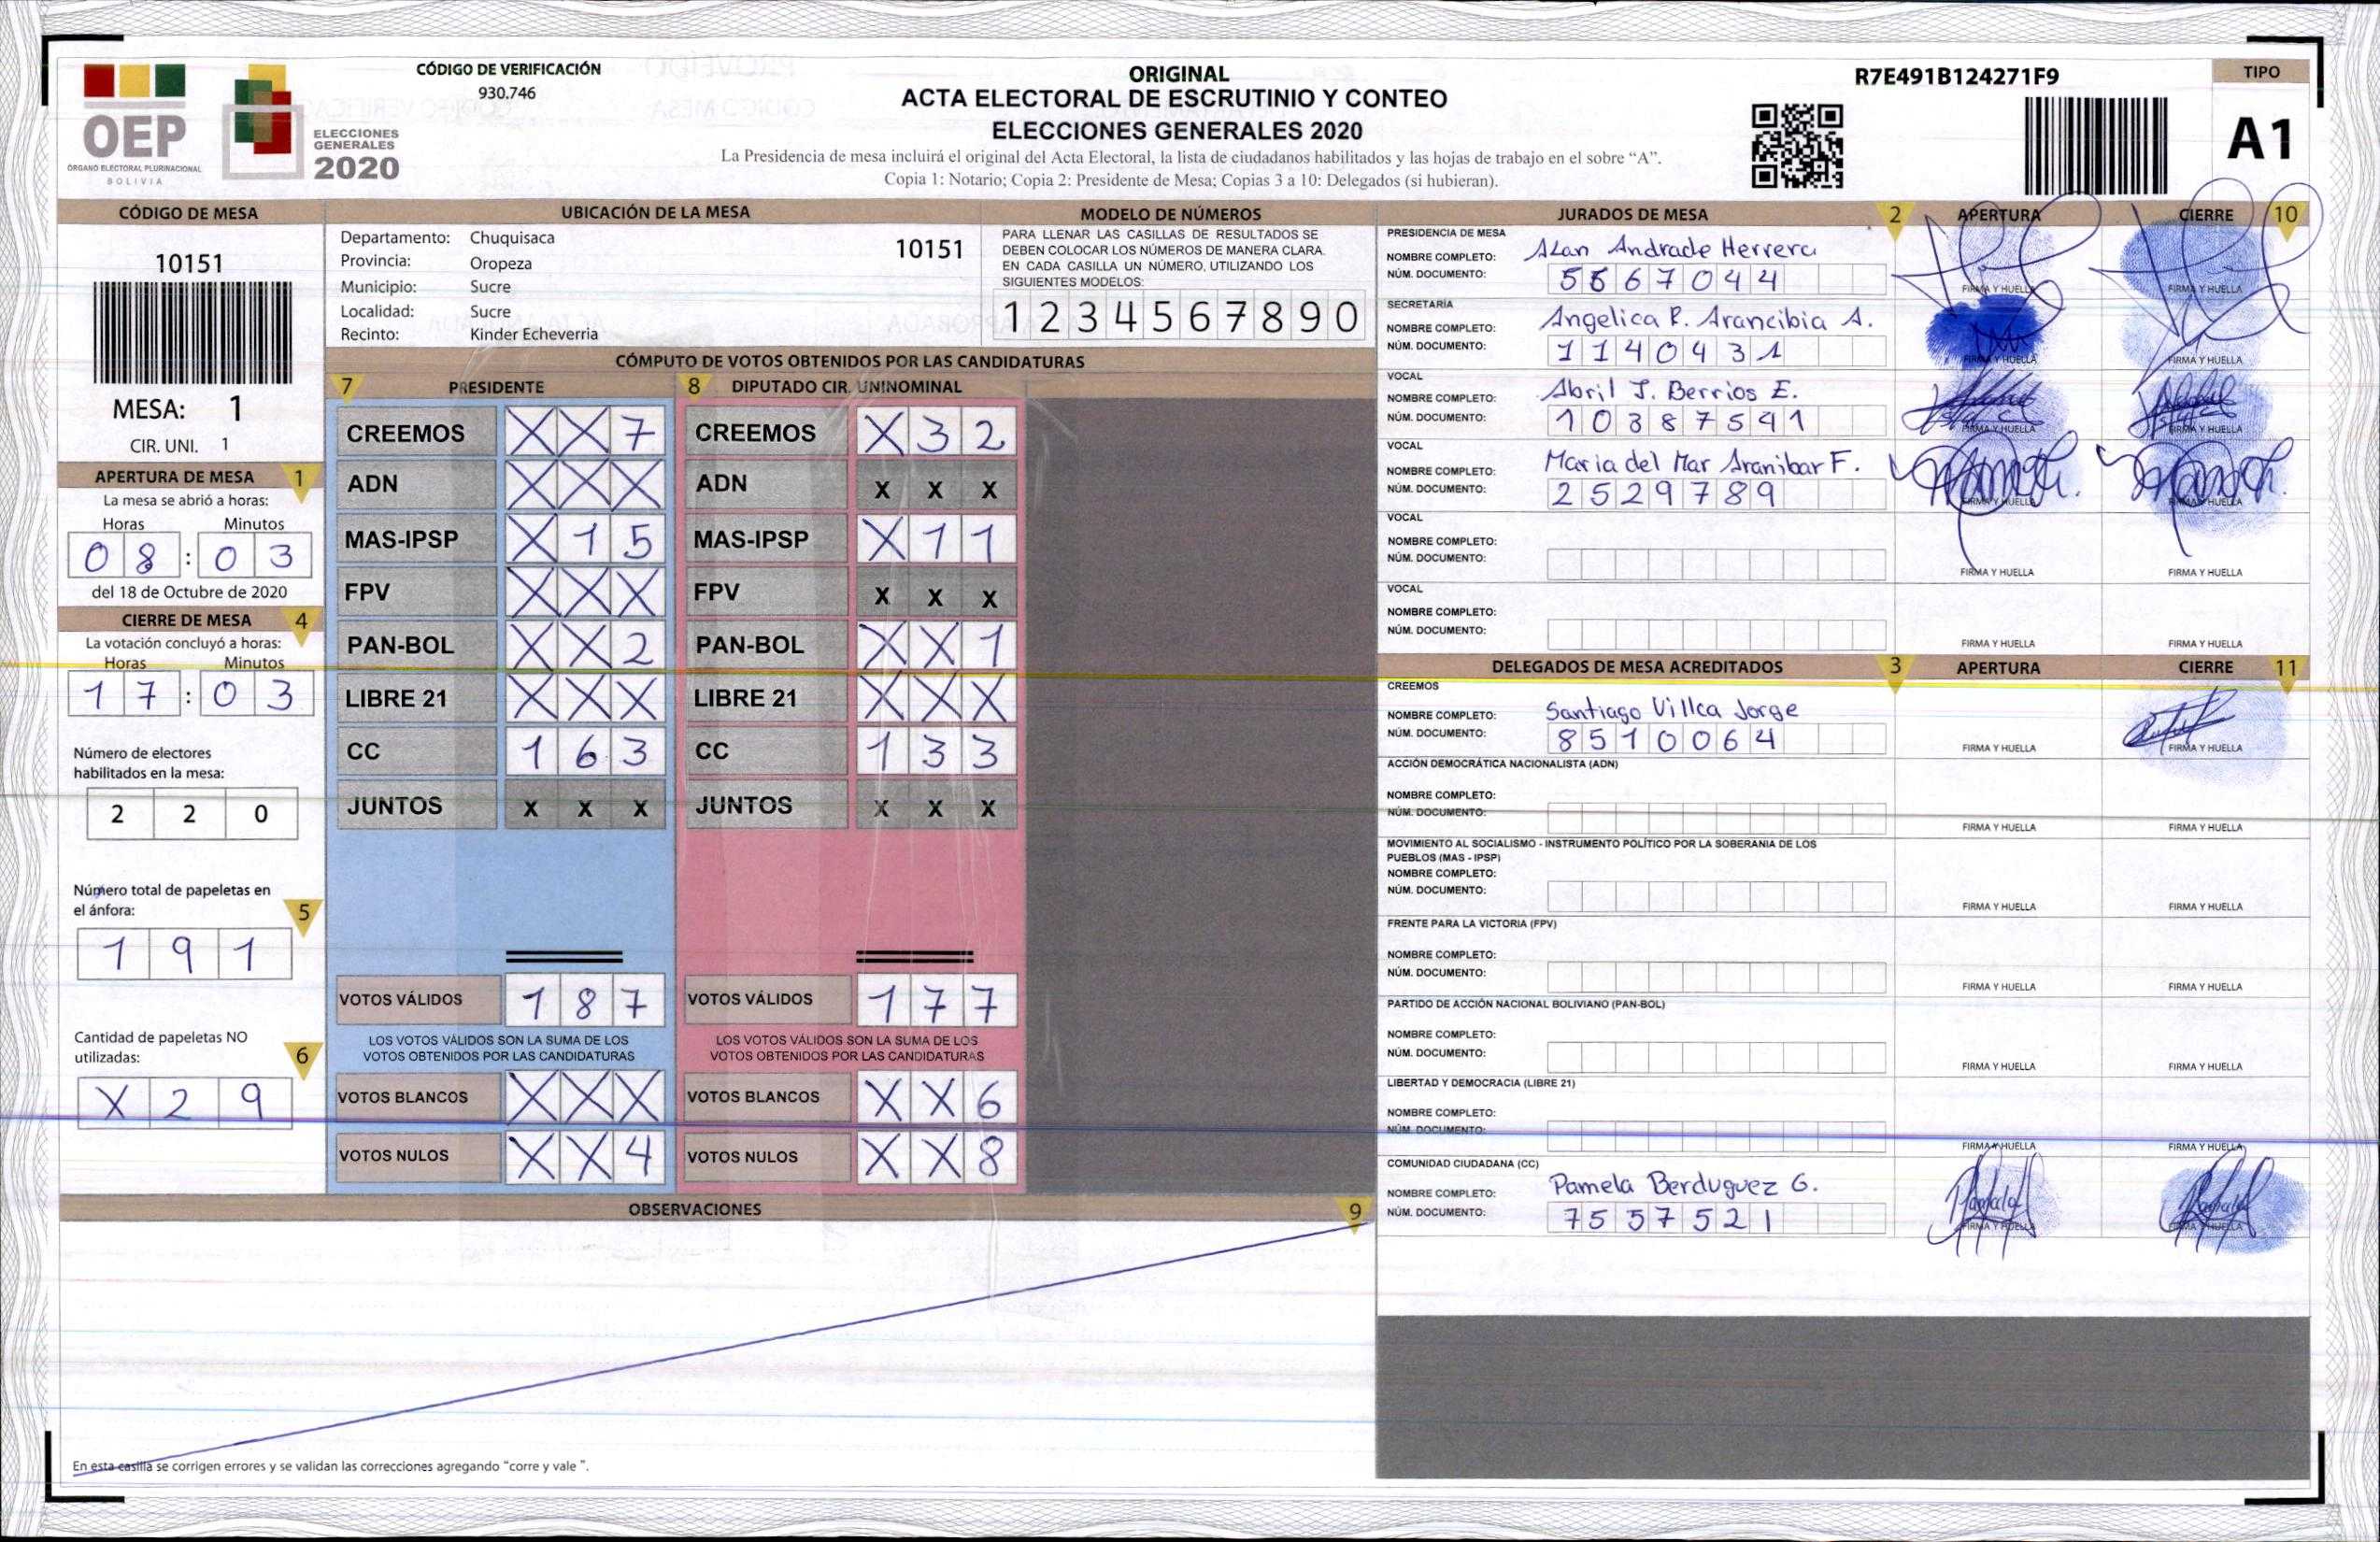 OEP
ÓRGANO ELECTORAL PLURINACIONAL
BOLIVIA
ELECCIONES
GENERALES
2020
CÓDIGO DE VERIFICACIÓN
930.746
ORIGINAL
ACTA ELECTORAL DE ESCRUTINIO Y CONTEO
ELECCIONES GENERALES 2020
La Presidencia de mesa incluirá el original del Acta Electoral, la lista de ciudadanos habilitados y las hojas de trabajo en el sobre “A”.
Copia 1: Notario; Copia 2: Presidente de Mesa; Copias 3 a 10: Delegados (si hubieran).
R7E491B124271F9
TIPO
A1
CÓDIGO DE MESA
10151
MESA: 1
CIR. UNI. 1
APERTURA DE MESA 1
La mesa se abrió a horas:
Horas Minutos
0 8 : 0 3
del 18 de Octubre de 2020
CIERRE DE MESA 4
La votación concluyó a horas:
Horas Minutos
1 7 : 0 3
Número de electores
habilitados en la mesa:
2 2 0
Número total de papeletas en
el ánfora: 5
1 9 1
Cantidad de papeletas NO
utilizadas: 6
X 2 9
UBICACIÓN DE LA MESA
Departamento: Chuquisaca 10151
Provincia: Oropeza
Municipio: Sucre
Localidad: Sucre
Recinto: Kinder Echeverria
MODELO DE NÚMEROS
PARA LLENAR LAS CASILLAS DE RESULTADOS SE
DEBEN COLOCAR LOS NÚMEROS DE MANERA CLARA.
EN CADA CASILLA UN NÚMERO, UTILIZANDO LOS
SIGUIENTES MODELOS:
1 2 3 4 5 6 7 8 9 0
CÓMPUTO DE VOTOS OBTENIDOS POR LAS CANDIDATURAS
7 PRESIDENTE 8 DIPUTADO CIR. UNINOMINAL
CREEMOS X X 7 CREEMOS X 3 2
ADN X X X ADN X X X
MAS-IPSP X 1 5 MAS-IPSP X 1 1
FPV X X X FPV X X X
PAN-BOL X X 2 PAN-BOL X X 1
LIBRE 21 X X X LIBRE 21 X X X
CC 1 6 3 CC 1 3 3
JUNTOS X X X JUNTOS X X X
VOTOS VÁLIDOS 1 8 7 VOTOS VÁLIDOS 1 7 7
LOS VOTOS VÁLIDOS SON LA SUMA DE LOS LOS VOTOS VÁLIDOS SON LA SUMA DE LOS
VOTOS OBTENIDOS POR LAS CANDIDATURAS VOTOS OBTENIDOS POR LAS CANDIDATURAS
VOTOS BLANCOS X X X VOTOS BLANCOS X X 6
VOTOS NULOS X X 4 VOTOS NULOS X X 8
OBSERVACIONES 9
En esta casilla se corrigen errores y se validan las correcciones agregando “corre y vale ”.
JURADOS DE MESA 2 APERTURA CIERRE 10
PRESIDENCIA DE MESA
NOMBRE COMPLETO: Alan Andrade Herrera
NÚM. DOCUMENTO: 5 6 6 7 0 4 4
FIRMA Y HUELLA FIRMA Y HUELLA
SECRETARÍA
NOMBRE COMPLETO: Angelica R. Arancibia A.
NÚM. DOCUMENTO: 1 1 4 0 4 3 1
FIRMA Y HUELLA FIRMA Y HUELLA
VOCAL
NOMBRE COMPLETO: Abril J. Berrios E.
NÚM. DOCUMENTO: 1 0 3 8 7 5 4 1
FIRMA Y HUELLA FIRMA Y HUELLA
VOCAL
NOMBRE COMPLETO: Maria del Mar Aranibar F.
NÚM. DOCUMENTO: 2 5 2 9 7 8 9
FIRMA Y HUELLA FIRMA Y HUELLA
VOCAL
NOMBRE COMPLETO:
NÚM. DOCUMENTO:
FIRMA Y HUELLA FIRMA Y HUELLA
VOCAL
NOMBRE COMPLETO:
NÚM. DOCUMENTO:
FIRMA Y HUELLA FIRMA Y HUELLA
DELEGADOS DE MESA ACREDITADOS 3 APERTURA CIERRE 11
CREEMOS
NOMBRE COMPLETO: Santiago Villca Jorge
NÚM. DOCUMENTO: 8 5 1 0 0 6 4
FIRMA Y HUELLA FIRMA Y HUELLA
ACCIÓN DEMOCRÁTICA NACIONALISTA (ADN)
NOMBRE COMPLETO:
NÚM. DOCUMENTO:
FIRMA Y HUELLA FIRMA Y HUELLA
MOVIMIENTO AL SOCIALISMO - INSTRUMENTO POLÍTICO POR LA SOBERANIA DE LOS
PUEBLOS (MAS - IPSP)
NOMBRE COMPLETO:
NÚM. DOCUMENTO:
FIRMA Y HUELLA FIRMA Y HUELLA
FRENTE PARA LA VICTORIA (FPV)
NOMBRE COMPLETO:
NÚM. DOCUMENTO:
FIRMA Y HUELLA FIRMA Y HUELLA
PARTIDO DE ACCIÓN NACIONAL BOLIVIANO (PAN-BOL)
NOMBRE COMPLETO:
NÚM. DOCUMENTO:
FIRMA Y HUELLA FIRMA Y HUELLA
LIBERTAD Y DEMOCRACIA (LIBRE 21)
NOMBRE COMPLETO:
NÚM. DOCUMENTO:
FIRMA Y HUELLA FIRMA Y HUELLA
COMUNIDAD CIUDADANA (CC)
NOMBRE COMPLETO: Pamela Berduguez G.
NÚM. DOCUMENTO: 7 5 5 7 5 2 1
FIRMA Y HUELLA FIRMA Y HUELLA